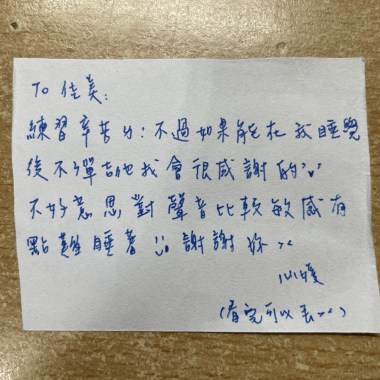 To 佳美:
練習辛苦ㄌ!不過如果能在我睡覺
後不彈吉他我會很感謝的'v'
不好意思對聲音比較敏感有
點難睡著 :;  謝謝妳><
心媛
(看完可以丟><)